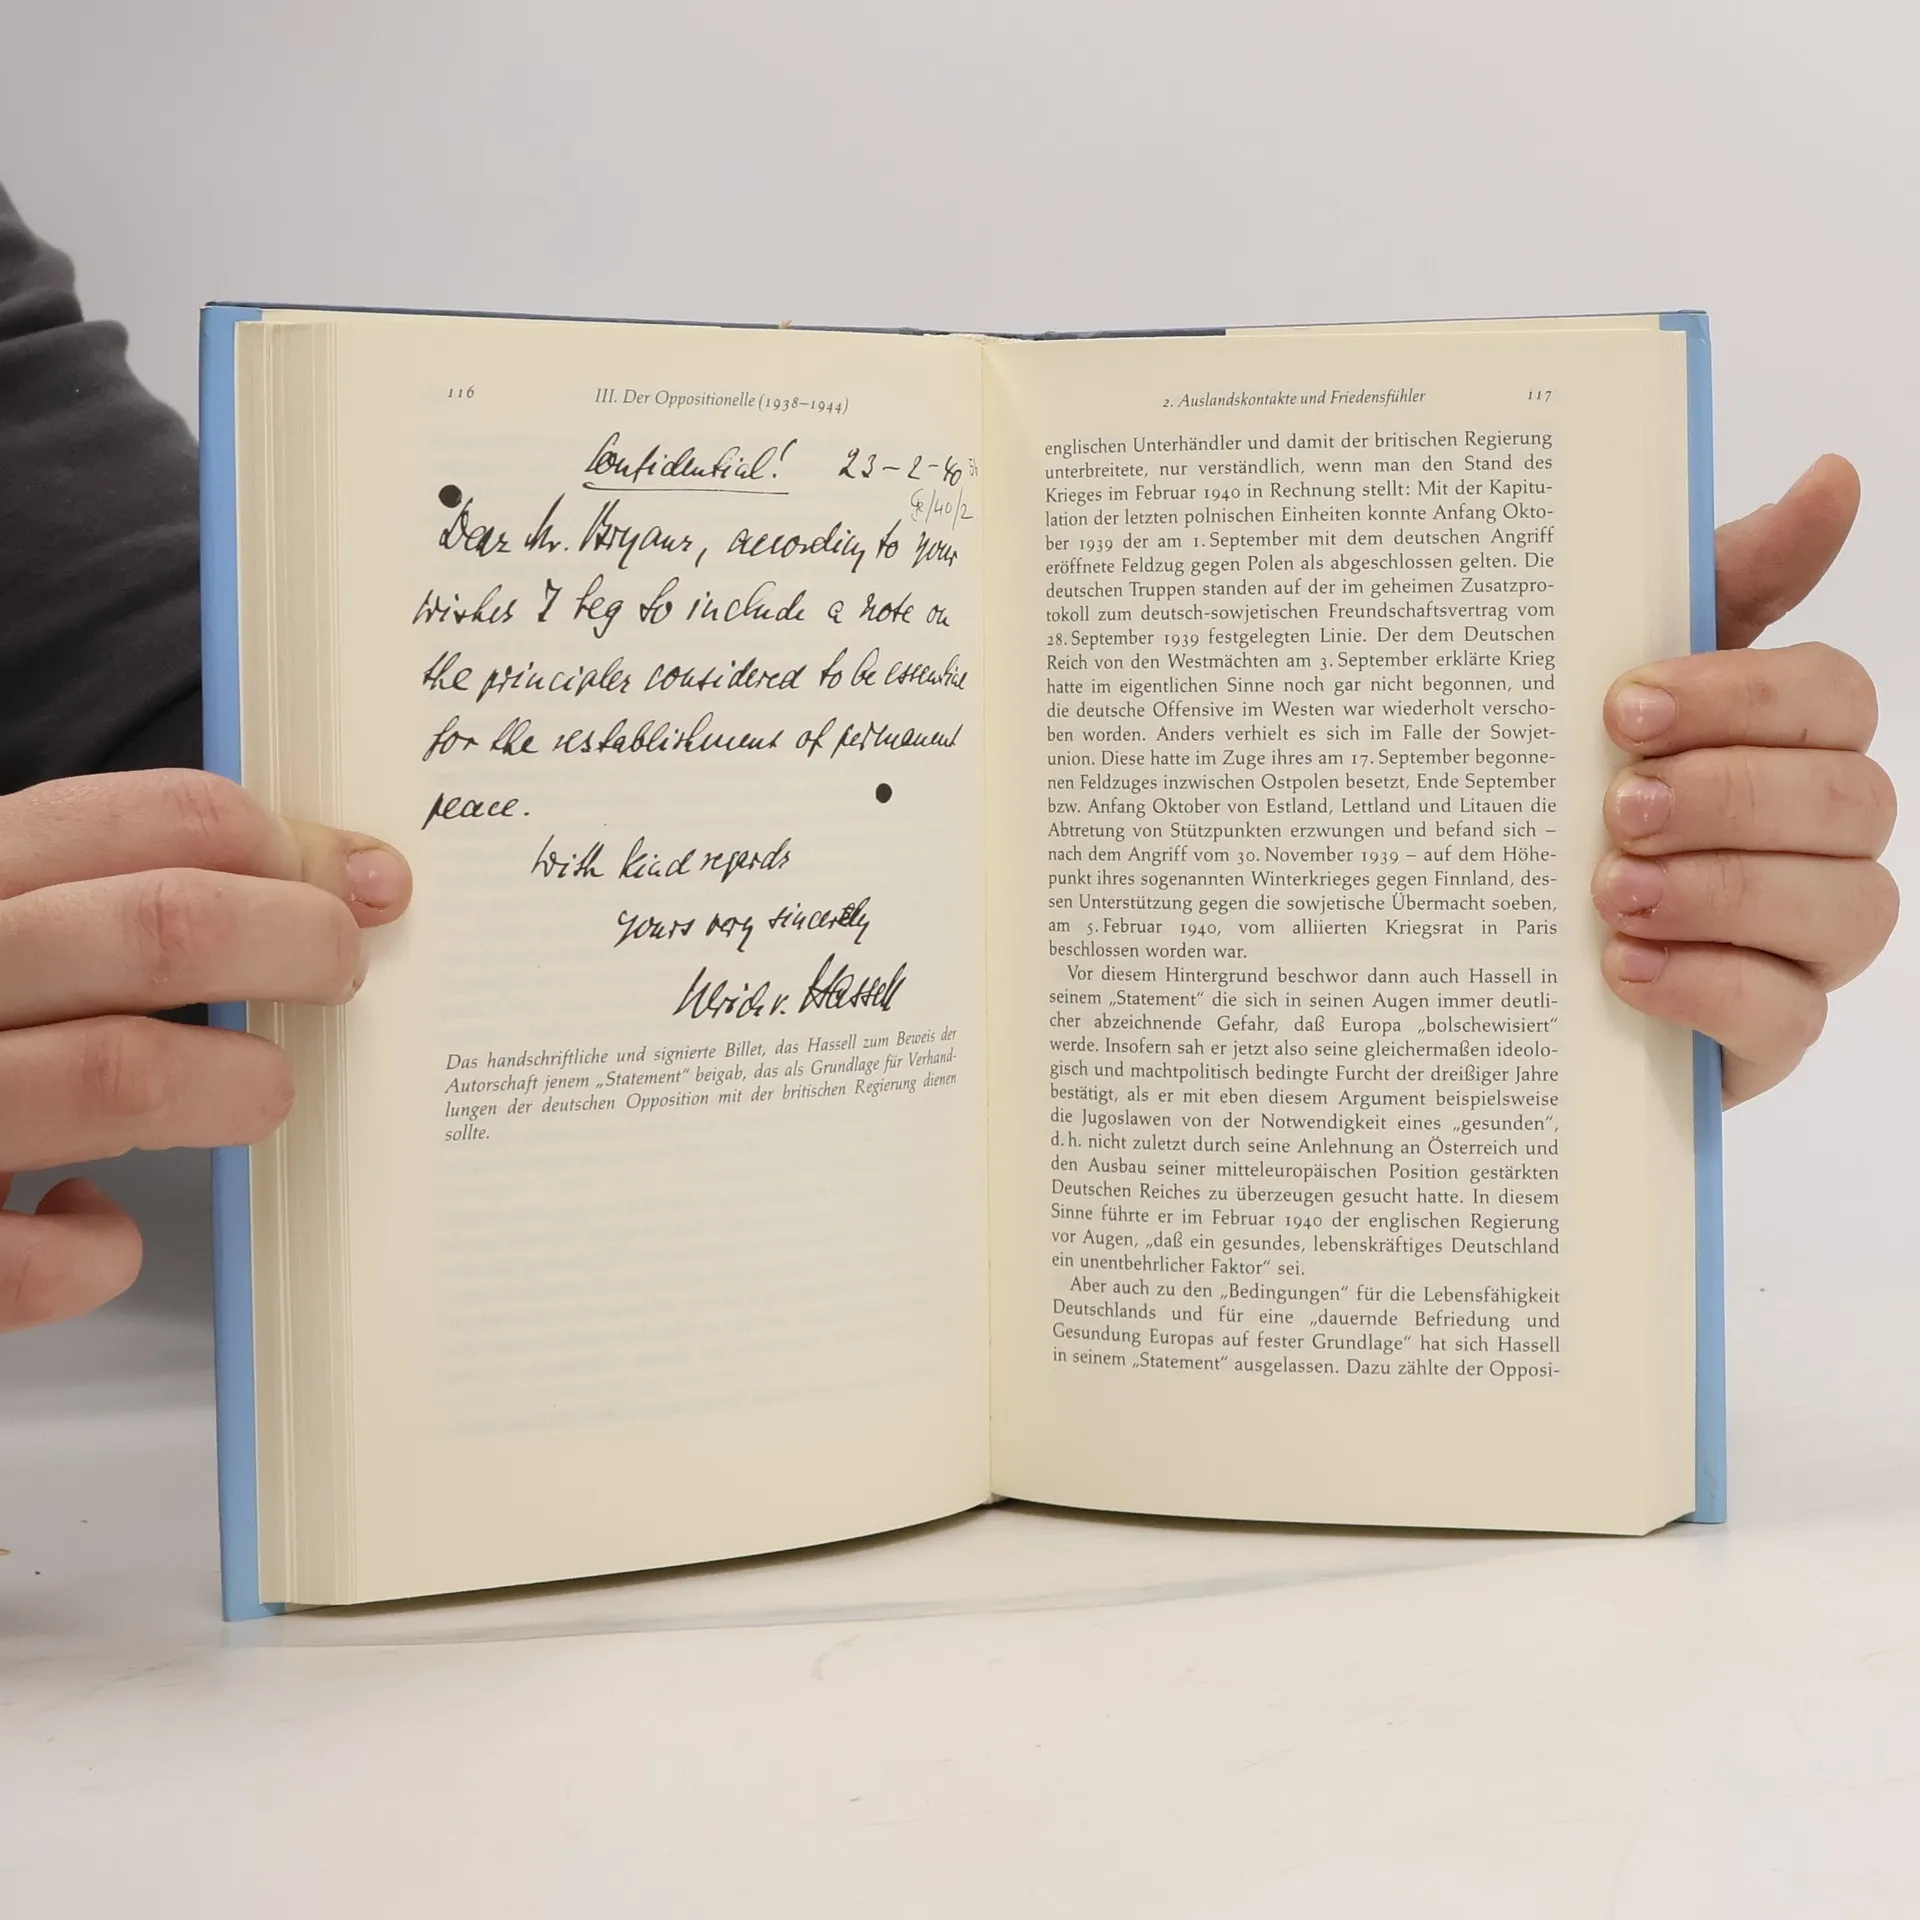 116
III. Der Oppositionelle (1938–1944)
Confidential! 23-2-40
Dear Mr. Bryans, according to your
wishes I beg to include a note on
the principles considered to be essential
for the restablishment of permanent
peace.
With kind regards
yours very sincerely
Ulrich v. Hassell
Das handschriftliche und signierte Billet, das Hassell zum Beweis der
Autorschaft jenem „Statement“ beigab, das als Grundlage für Verhand-
lungen der deutschen Opposition mit der britischen Regierung dienen
sollte.
2. Auslandskontakte und Friedensfühler
117
englischen Unterhändler und damit der britischen Regierung
unterbreitete, nur verständlich, wenn man den Stand des
Krieges im Februar 1940 in Rechnung stellt: Mit der Kapitu-
lation der letzten polnischen Einheiten konnte Anfang Okto-
ber 1939 der am 1. September mit dem deutschen Angriff
eröffnete Feldzug gegen Polen als abgeschlossen gelten. Die
deutschen Truppen standen auf der im geheimen Zusatzpro-
tokoll zum deutsch-sowjetischen Freundschaftsvertrag vom
28. September 1939 festgelegten Linie. Der dem Deutschen
Reich von den Westmächten am 3. September erklärte Krieg
hatte im eigentlichen Sinne noch gar nicht begonnen, und
die deutsche Offensive im Westen war wiederholt verscho-
ben worden. Anders verhielt es sich im Falle der Sowjet-
union. Diese hatte im Zuge ihres am 17. September begonne-
nen Feldzuges inzwischen Ostpolen besetzt, Ende September
bzw. Anfang Oktober von Estland, Lettland und Litauen die
Abtretung von Stützpunkten erzwungen und befand sich –
nach dem Angriff vom 30. November 1939 – auf dem Höhe-
punkt ihres sogenannten Winterkrieges gegen Finnland, des-
sen Unterstützung gegen die sowjetische Übermacht soeben,
am 5. Februar 1940, vom alliierten Kriegsrat in Paris
beschlossen worden war.
Vor diesem Hintergrund beschwor dann auch Hassell in
seinem „Statement“ die sich in seinen Augen immer deutli-
cher abzeichnende Gefahr, daß Europa „bolschewisiert“
werde. Insofern sah er jetzt also seine gleichermaßen ideolo-
gisch und machtpolitisch bedingte Furcht der dreißiger Jahre
bestätigt, als er mit eben diesem Argument beispielsweise
die Jugoslawen von der Notwendigkeit eines „gesunden“,
d. h. nicht zuletzt durch seine Anlehnung an Österreich und
den Ausbau seiner mitteleuropäischen Position gestärkten
Deutschen Reiches zu überzeugen gesucht hatte. In diesem
Sinne führte er im Februar 1940 der englischen Regierung
vor Augen, „daß ein gesundes, lebenskräftiges Deutschland
ein unentbehrlicher Faktor“ sei.
Aber auch zu den „Bedingungen“ für die Lebensfähigkeit
Deutschlands und für eine „dauernde Befriedung und
Gesundung Europas auf fester Grundlage“ hat sich Hassell
in seinem „Statement“ ausgelassen. Dazu zählte der Opposi-